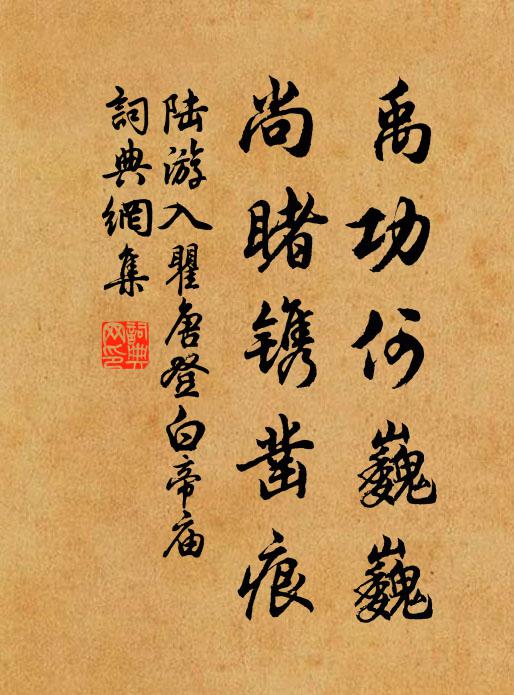 禹功何巍巍
尚睹镌凿痕
陆游入瞿唐登白帝庙
詞典網集
詞典网印